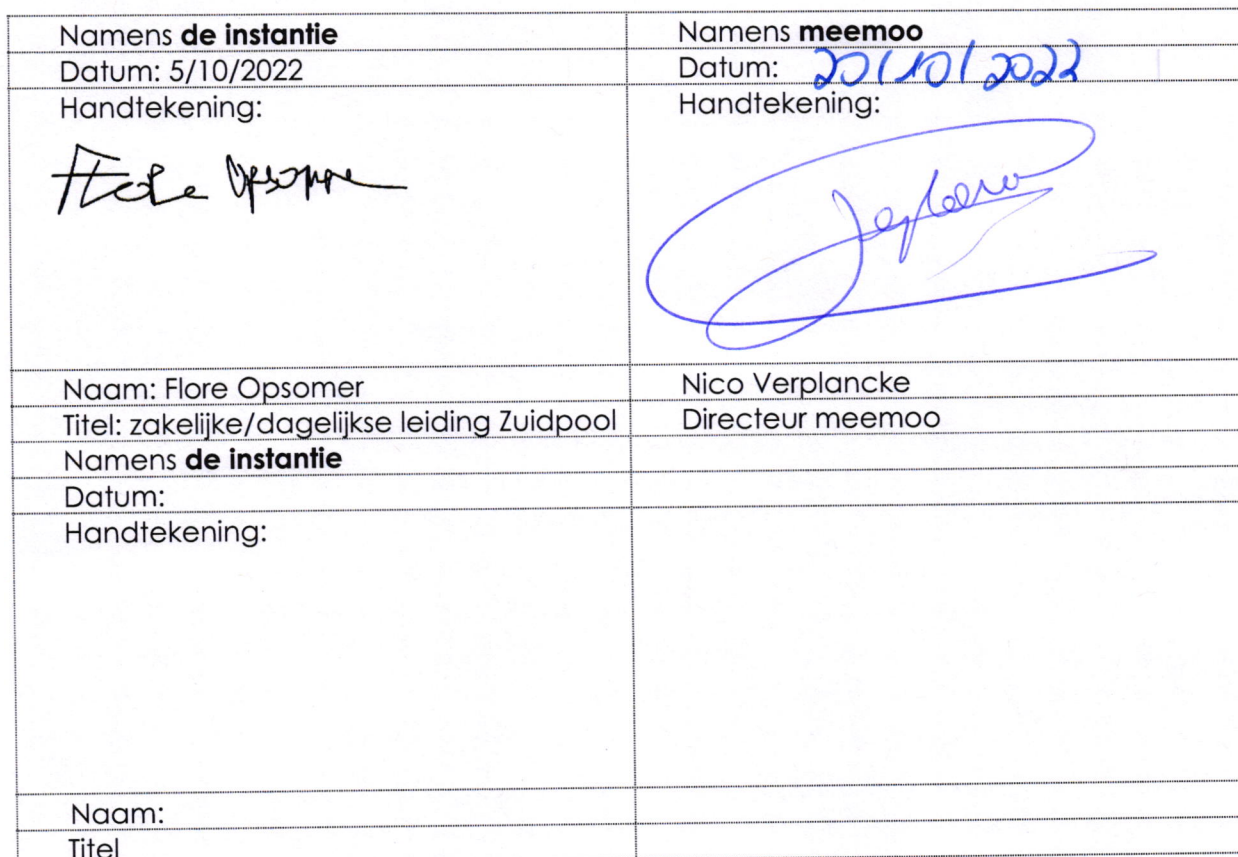 Namens de instantie
Namens meemoo
Datum: 5/10/2022
Datum: 20/10/2022
Handtekening:
Handtekening:
Flore Opsomer
Naam: Flore Opsomer
Nico Verplancke
Titel: zakelijke/dagelijkse leiding Zuidpool
Directeur meemoo
Namens de instantie
Datum:
Handtekening:
Naam:
Titel